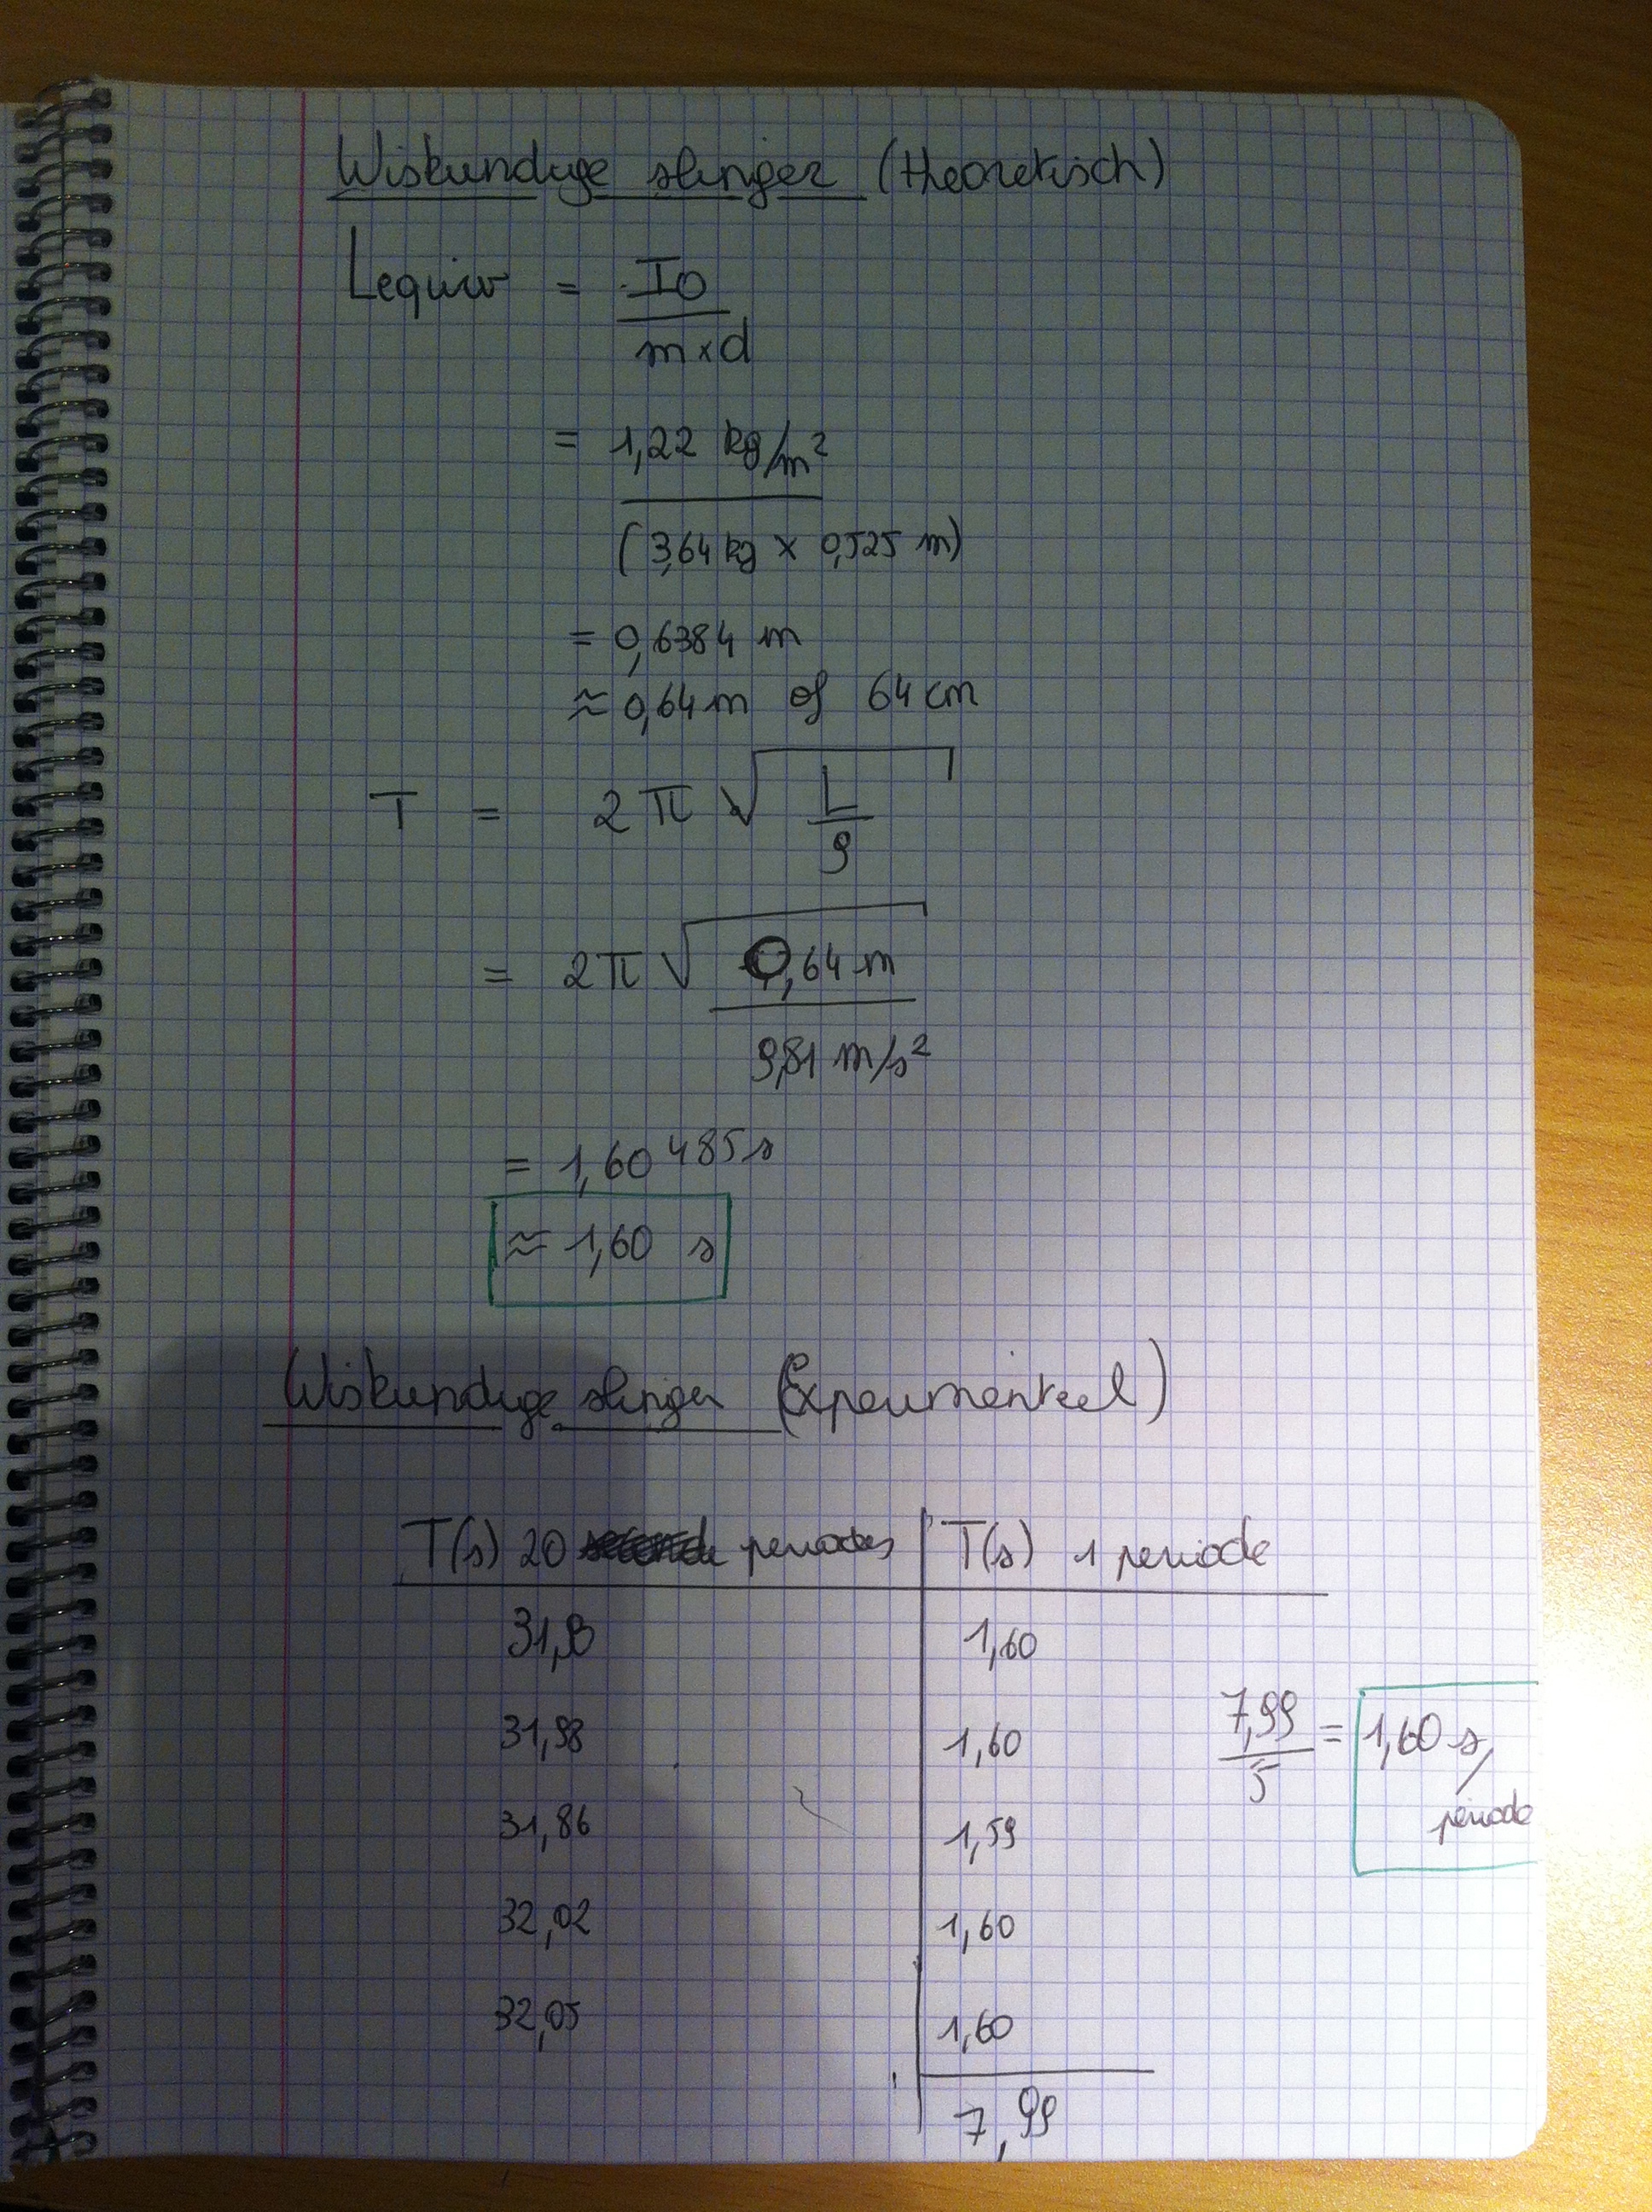 Wiskundige slinger (theoretisch)
Lequiv = I0
m×d
= 1,22 kg/m²
(3,64 kg × 0,525 m)
= 0,6384 m
≈ 0,64 m of 64 cm
T = 2π √ L
g
= 2π √ 0,64 m
9,81 m/s²
= 1,60485 s
≈ 1,60 s
Wiskundige slinger (Experimenteel)
T(s) 20 periodes T(s) 1 periode
1,60
31,98 1,60 7,99 = 1,60 s/
5 periode
31,86 1,59
32,02 1,60
32,05 1,60
7,99